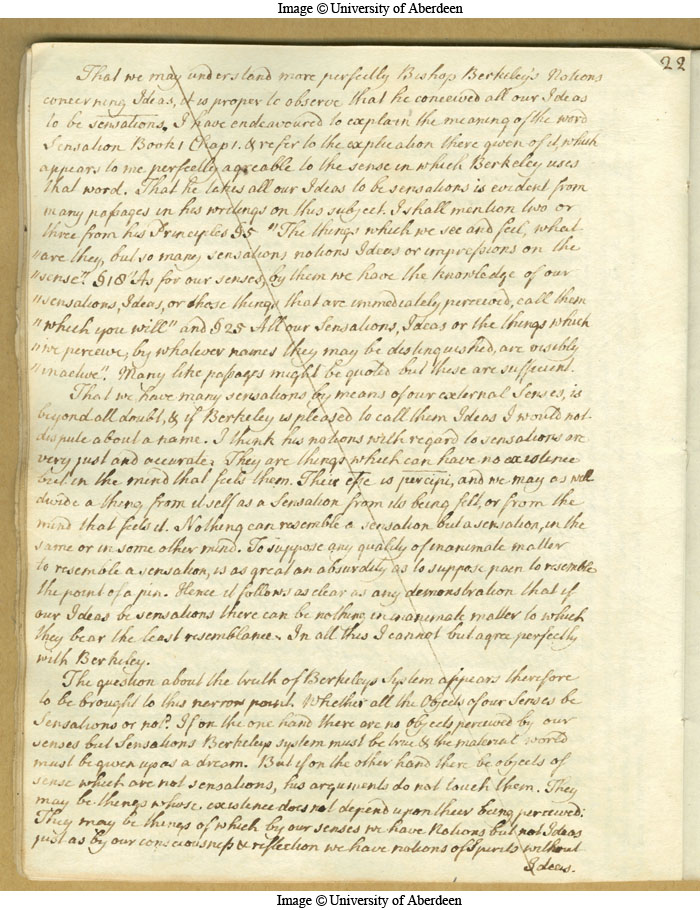 Image © University of Aberdeen
22
That we may understand more perfectly Bishop Berkeley's Notions
concerning Ideas, it is proper to observe that he conceived all our Ideas
to be sensations. I have endeavoured to explain the meaning of the word
Sensation Book 1 Chap 1. & refer to the explication there given of it, which
appears to me perfectly agreable to the sense in which Berkeley uses
that word. That he takes all our Ideas to be sensations is evident from
many passages in his writings on this subject. I shall mention two or
three from his Principles §5 "The things which we see and feel, what
"are they, but so many sensations notions Ideas or impressions on the
"sense". §18 "As for our senses, by them we have the knowledge of our
"sensations, Ideas, or those things that are immediately perceived, call them
"which you will" and §25 All our Sensations, Ideas or the things which
"we perceive, by whatever names they may be distinguished, are visibly
"inactive". Many like passages might be quoted but these are sufficient.
That we have many sensations by means of our external Senses, is
beyond all doubt, & if Berkeley is pleased to call them Ideas I would not
dispute about a name. I think his notions with regard to sensations are
very just and accurate. They are things which can have no existence
but in the mind that feels them. Their esse is percipi, and we may as well
divide a thing from itself as a Sensation from its being felt, or from the
mind that feels it. Nothing can resemble a sensation but a sensation, in the
same or in some other mind. To suppose any quality of inanimate matter
to resemble a sensation, is as great an absurdity as to suppose pain to resemble
the point of a pin. Hence it follows as clear as any demonstration that if
our Ideas be sensations there can be nothing in inanimate matter to which
they bear the least resemblance. In all this I cannot but agree perfectly
with Berkeley.
The question about the truth of Berkeleys System appears therefore
to be brought to this narrow point. Whether all the Objects of our Senses be
Sensations or not? If on the one hand there are no objects perceived by our
senses but Sensations Berkeleys system must be true & the material world
must be given up as a dream. But if on the other hand there be objects of
sense which are not sensations, his arguments do not touch them. They
may be things whose existence does not depend upon their being perceived:
They may be things of which by our senses we have Notions but not Ideas
just as by our consciousness & reflection we have notions of Spirits without
Ideas.
Image © University of Aberdeen